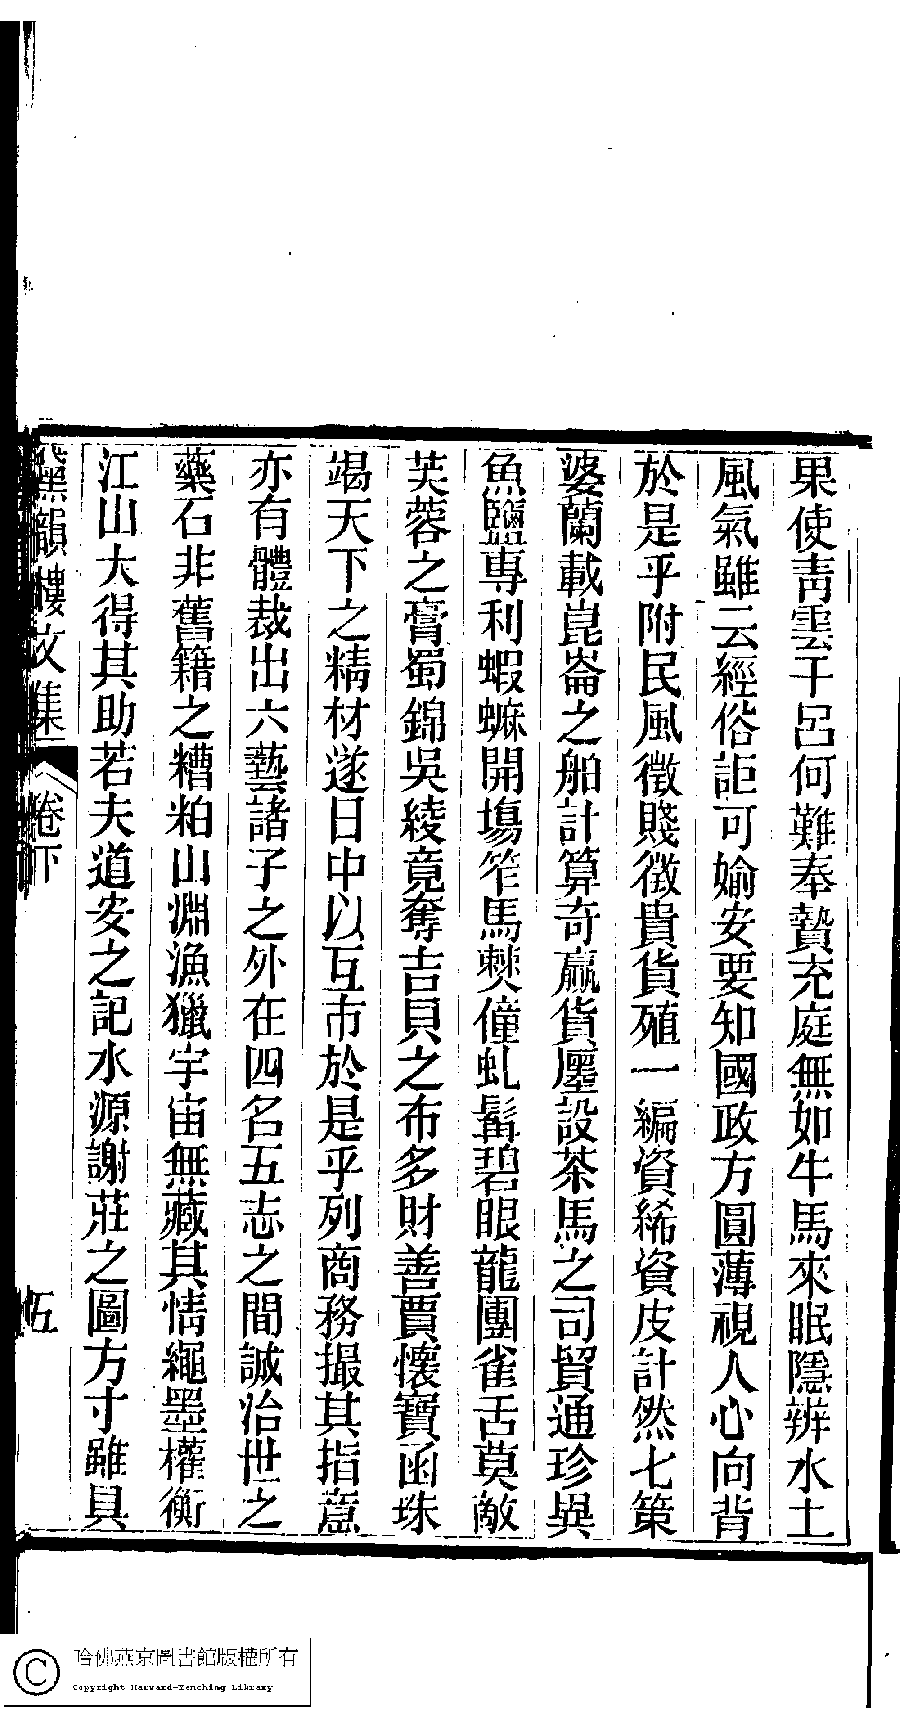 果使青雲干呂何難奉贄充庭無如牛馬來眠隱辨水土
風氣雖云經俗詎可媮安要知國政方圓薄視人心向背
於是乎附民風徵賤徵貴貨殖一編資絺資皮計然七策
婆蘭載崑崙之舶計算奇贏貨廛設茶馬之司貿通珍異
魚鹽專利蝦蟵開場笮馬僰僮虬髯碧眼龍團雀舌莫敵
芙蓉之膏蜀錦吳綾竟奪吉貝之布多財善賈懷寶函珠
竭天下之精材遂日中以互市於是乎列商務撮其指意
亦有體裁出六藝諸子之外在四名五志之間誠治世之
藥石非舊籍之糟粕山淵漁獵宇宙無藏其情繩墨權衡
江山大得其助若夫道安之記水源謝莊之圖方寸雖具
韻樓文集 卷下 五
哈佛燕京圖書館版權所有
Copyright Harvard-Yenching Library